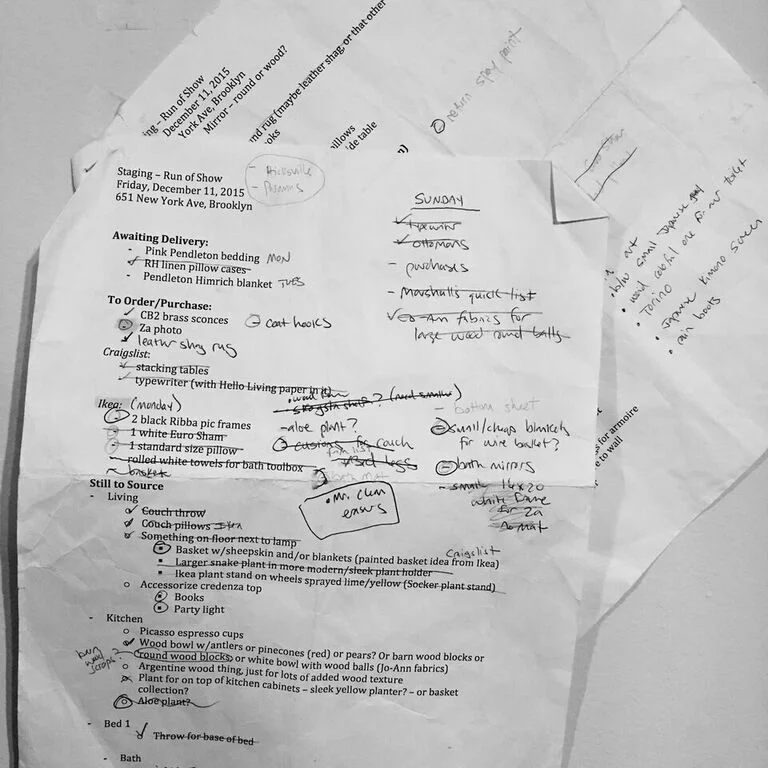 ng – Run of Show
December 11, 2015
York Ave, Brooklyn
Mirror – round or wood?
nd rug (maybe leather shag, or that other
oks
illows
de table
return spray paint
Staging – Run of Show
Friday, December 11, 2015
651 New York Ave, Brooklyn
- Hicksville
SUNDAY
typewriter
ottomans
- purchases
- Marshalls quick list
Jo-Ann fabrics for
large wood round balls
Awaiting Delivery:
- Pink Pendleton bedding MON
- RH linen pillow cases
- Pendleton Himrich blanket TUES
To Order/Purchase:
CB2 brass sconces
Za photo
- coat hooks
leather shag rug
Craigslist:
stacking tables
typewriter (with Hello Living paper in it)
Ikea: (monday)
2 black Ribba pic frames
1 white Euro Sham
1 standard size pillow
rolled white towels for bath toolbox
basket
-aloe plant?
cusions for couch
- bottom sheet
small/cheap blankets
for wire basket?
bath mirrors
- small 16x20
white frame
for Za
no mat
• Mr. Clean
erasers
Still to Source
- Living
Couch throw
Couch pillows Ikea
Something on floor next to lamp
Basket w/sheepskin and/or blankets (painted basket idea from Ikea)
Craigslist
Larger snake plant in more modern/sleek plant holder
Ikea plant stand on wheels sprayed lime/yellow (Socker plant stand)
o Accessorize credenza top
Books
Party light
- Kitchen
o Picasso espresso cups
Wood bowl w/antlers or pinecones (red) or pears? Or barn wood blocks or
round wood blocks, or white bowl with wood balls (Jo-Ann fabrics)
barn
wood
scraps?
o Argentine wood thing, just for lots of added wood texture
Plant for on top of kitchen cabinets – sleek yellow planter? – or basket
collection?
Aloe plant?
- Bed 1
Throw for base of bed
- Bath
art
• b/w small Japanese
• Torino
• Japanese kimono screen
• rain boots
for armoire
e to wall